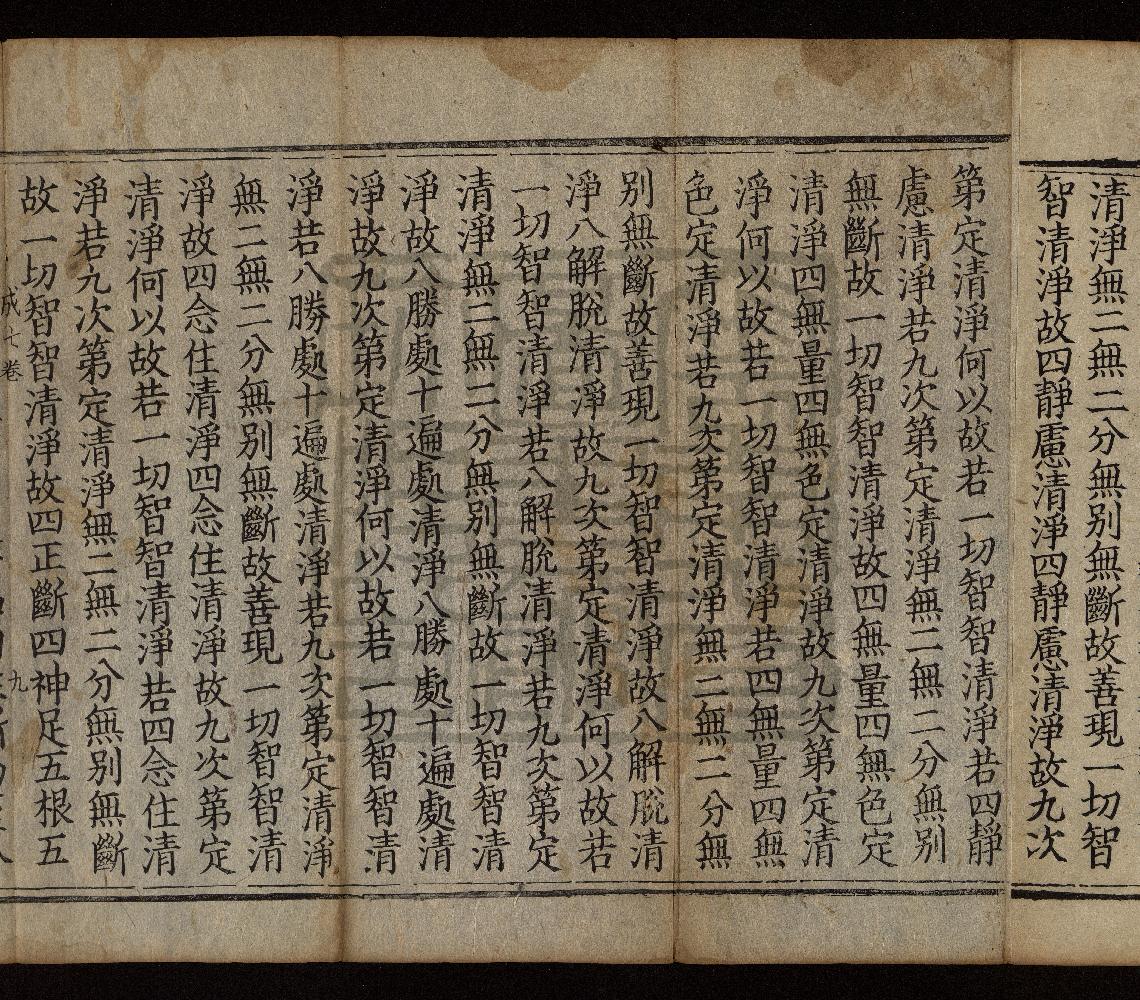 清淨無二無二分無別無斷故善現一切智
智清淨故四靜慮清淨四靜慮清淨故九次
第定清淨何以故若一切智智清淨若四靜
慮清淨若九次第定清淨無二無二分無別
無斷故一切智智清淨故四無量四無色定
清淨四無量四無色定清淨故九次第定清
淨何以故若一切智智清淨若四無量四無
色定清淨若九次第定清淨無二無二分無
別無斷故善現一切智智清淨故八解脫清
淨八解脫清淨故九次第定清淨何以故若
一切智智清淨若八解脫清淨若九次第定
清淨無二無二分無別無斷故一切智智清
淨故八勝處十遍處清淨八勝處十遍處清
淨故九次第定清淨何以故若一切智智清
淨若八勝處十遍處清淨若九次第定清淨
無二無二分無別無斷故善現一切智智清
淨故四念住清淨四念住清淨故九次第定
清淨何以故若一切智智清淨若四念住清
淨若九次第定清淨無二無二分無別無斷
故一切智智清淨故四正斷四神足五根五
七卷 九